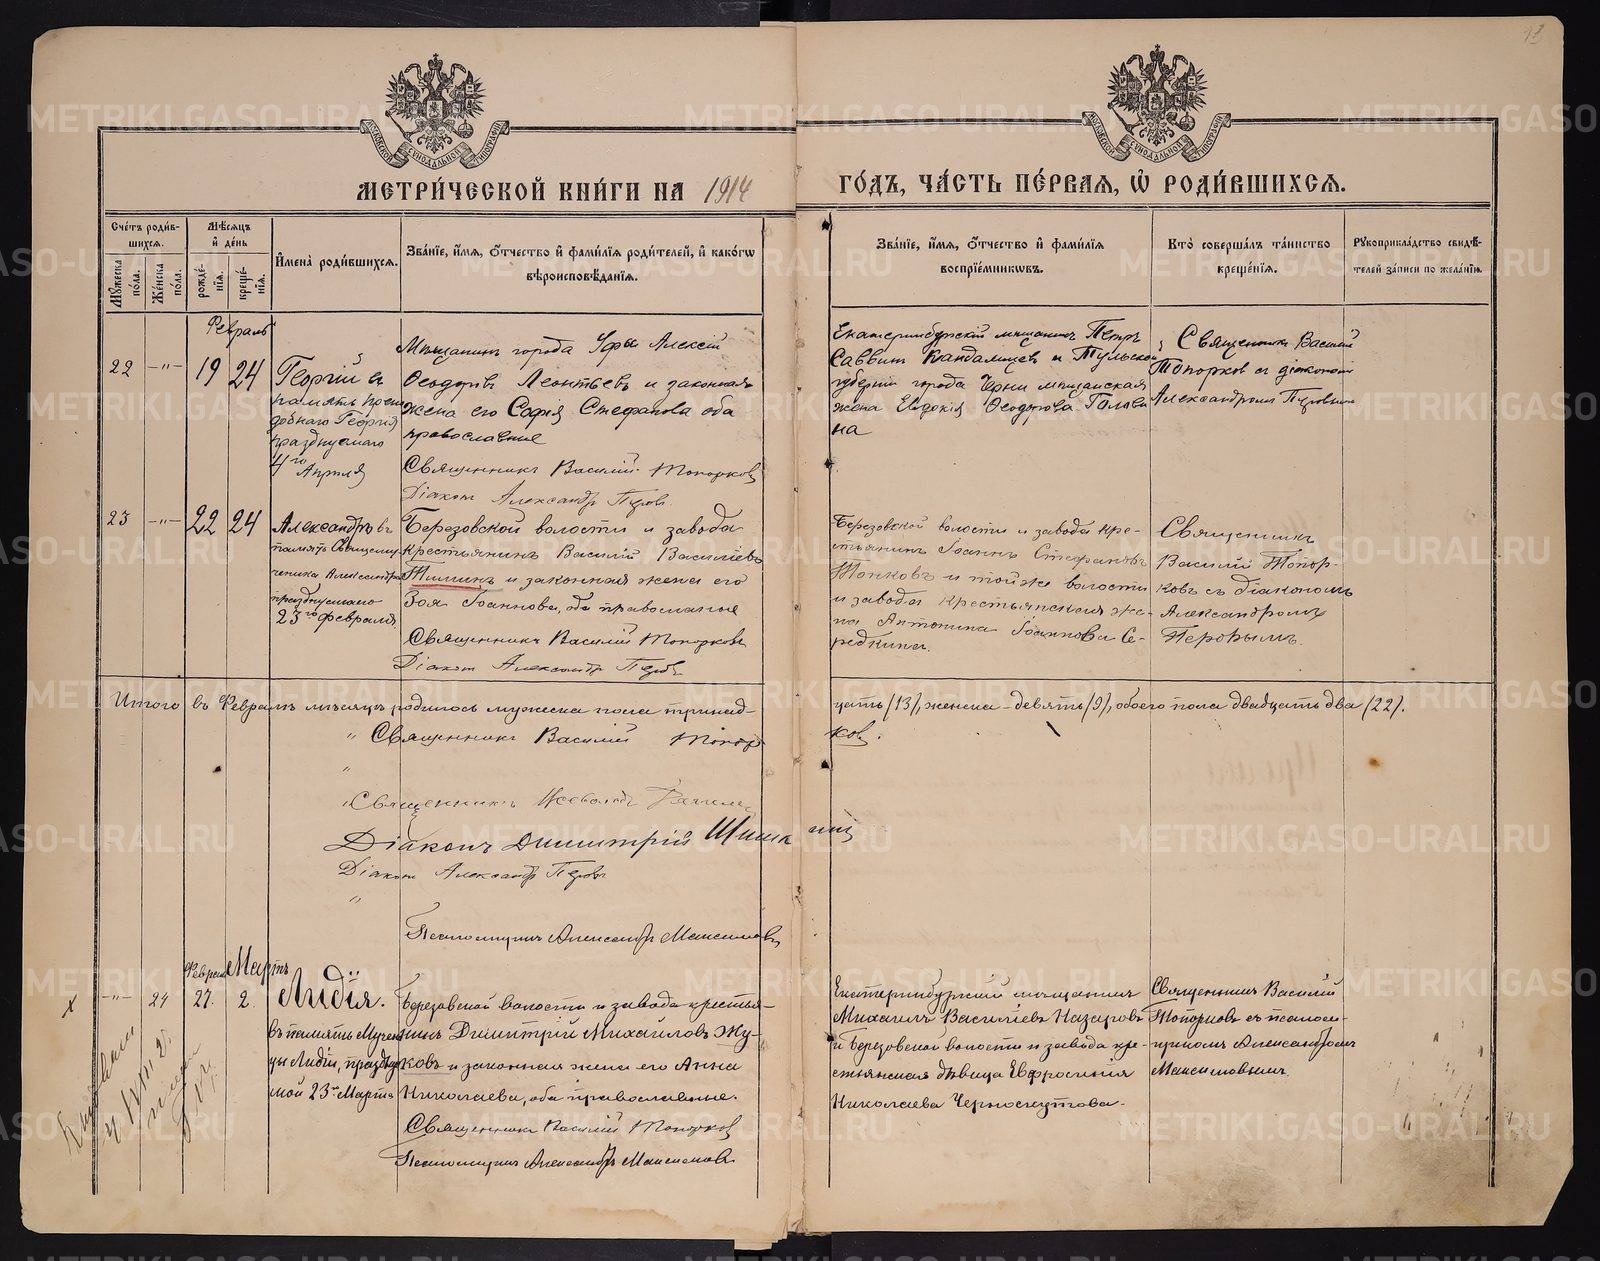 13
МОСКОВСКОЙ СѴНОДАЛЬНОЙ ТИПОГРАФІИ
МОСКОВСКОЙ СѴНОДАЛЬНОЙ ТИПОГРАФІИ
МЕТРИ́ЧЕСКОЙ КНИ́ГИ НА 1914
ГО́ДЪ, ЧА́СТЬ ПЕ́РВАѦ, Ѡ҆ РОДИ́ВШИХСѦ.
Сче́тъ роди́в-
шихсѧ.
Мꙋ́жеска по́ла.
Же́нска по́ла.
Мѣ́сѧцъ
и҆ де́нь
рожде́-
нїѧ.
креще́-
нїѧ.
И҆мена̀ роди́вшихсѧ.
Зва́нїе, и҆́мѧ, ѻ҆́тчество и҆ фами́лїѧ роди́телей, и҆ како́гѡ
вѣроисповѣ́данїѧ.
Зва́нїе, и҆́мѧ, ѻ҆́тчество и҆ фами́лїѧ
воспрїе́мникѡвъ.
Кто̀ соверша́лъ та́инство
креще́нїѧ.
Рꙋкоприкла́дство свидѣ́-
телей за́писи по жела́нїю.
Февраль
22 —"— 19 24
Георгій въ
память преп
добнаго Георгія
празднуемаго
4го Апрѣля
Мѣщанинъ города Уфы Алексій
Ѳеодоровъ Леонтьевъ и законная
жена его Софія Стефанова оба
православные
Священникъ Василій Топорковъ
Діаконъ Александръ Перовъ
Екатеринбургскій мѣщанинъ Петръ
Саввинъ Кандалинцевъ и Тульской
губерніи города Черни мѣщанская
жена Евдокія Ѳеодорова Голови
на
Священникъ Василій
Топорковъ съ діакономъ
Александромъ Перовымъ
23 —"— 22 24
Александръ въ
память Священму
ченика Александра
празднуемаго
23го февраля
Березовской волости и завода
крестьянинъ Василій Васильевъ
и законная жена его
Зоя Іоаннова, оба православные
Священникъ Василій Топорковъ
Діаконъ Александръ Перовъ
Березовской волости и завода кре-
стьянинъ Іоаннъ Стефановъ
Топковъ и той же волости
и завода крестьянская же-
на Антонина Іоаннова Се-
редкина.
Священникъ
Василій Топор-
ковъ съ діакономъ
Александромъ
Перовымъ
Итого въ Февралѣ мѣсяцѣ родилось мужеска пола тринад-
цать (13), женска - девять (9), обоего пола двадцать два (22).
" Священникъ Василій Топор
ковъ.
"
" Священникъ
Діаконъ Димитрій
Діаконъ Александръ Перовъ
"
Псаломщикъ Александръ Максимовъ
Февраль Мартъ
х —"— 24 27. 2.
Лидія.
въ память Мучен
цы Лидіи, праздну
мой 23го Марта
Березовской волости и завода крестья-
нинъ Димитрій Михайловъ Жу-
ковъ и законная жена его Анна
Николаева, оба православные.
Священникъ Василій Топорковъ
Псаломщикъ Александръ Максимовъ
Екатеринбургскій мѣщанинъ
Михаилъ Васильевъ Назаровъ
и Березовской волости и завода кре-
стьянская дѣвица Евфросинія
Николаева Черноскутова.
Священникъ Василій
Топорковъ съ псалом-
щикомъ Александромъ
Максимовымъ.
METRIKI.GASO-URAL.RU